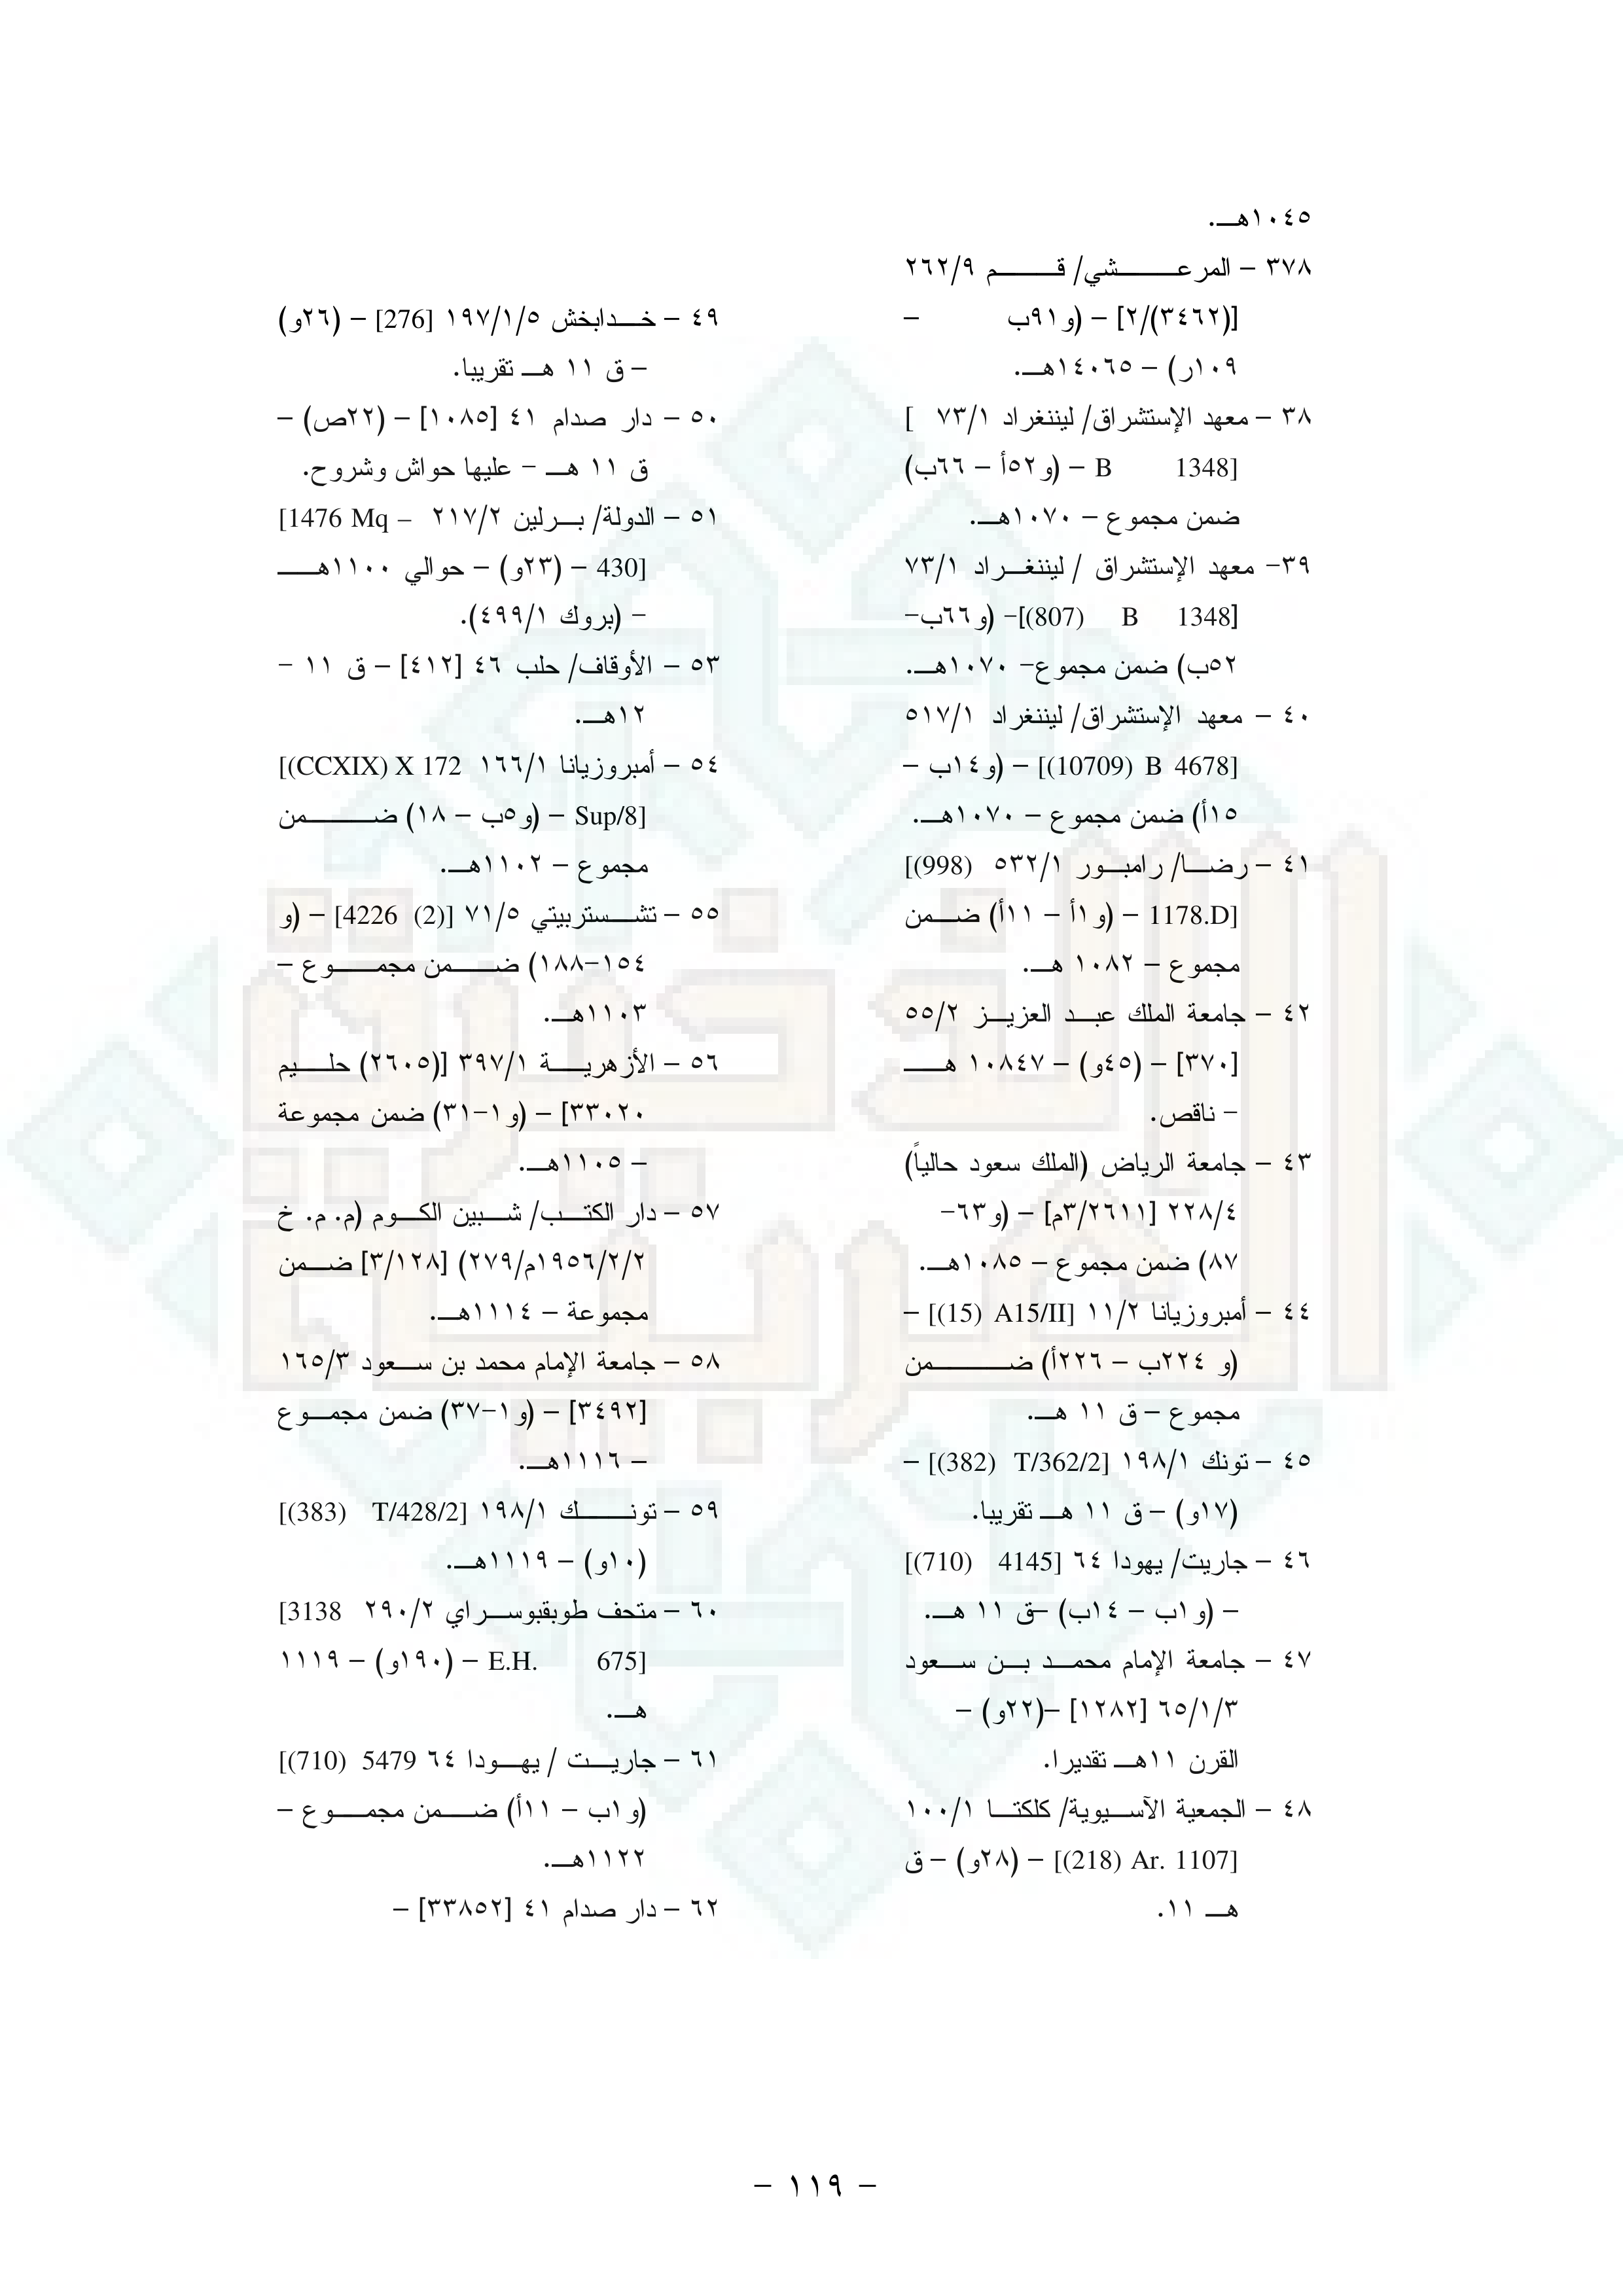 ١٠٤٥هـ.
٣٧٨ – المرعشي/ قم ٢٦٢/٩
[(٣٤٦٢)/٢] – (و٩١ب –
١٠٩ر) – ١٤٠٦٥هـ.
٣٨ – معهد الإستشراق/ ليننغراد ٧٣/١ [
B 1348] – (و٥٢أ – ٦٦ب)
ضمن مجموع – ١٠٧٠هـ.
٣٩- معهد الإستشراق / ليننغراد ٧٣/١
[(807) B 1348]- (و٦٦ب-
٥٢ب) ضمن مجموع- ١٠٧٠هـ.
٤٠ – معهد الإستشراق/ ليننغراد ٥١٧/١
[(10709) B 4678] – (و١٤ب –
١٥أ) ضمن مجموع – ١٠٧٠هـ.
٤١ – رضا/ رامبور ٥٣٢/١ [(998)
1178.D] – (و١أ – ١١أ) ضمن
مجموع – ١٠٨٢ هـ.
٤٢ – جامعة الملك عبد العزيز ٥٥/٢
[٣٧٠] – (٤٥و) – ١٠٨٤٧ هـ
– ناقص.
٤٣ – جامعة الرياض (الملك سعود حالياً)
٢٢٨/٤ [٣/٢٦١١م] – (و٦٣-
٨٧) ضمن مجموع – ١٠٨٥هـ.
٤٤ – أمبروزيانا ١١/٢ [(15) A15/II] –
(و ٢٢٤ب – ٢٢٦أ) ضمن
مجموع – ق ١١ هـ.
٤٥ – تونك ١٩٨/١ [(382) T/362/2] –
(١٧و) – ق ١١ هـ تقريبا.
٤٦ – جاريت/ يهودا ٦٤ [(710) 4145]
– (و١ب – ١٤ب) –ق ١١ هـ.
٤٧ – جامعة الإمام محمد بن سعود
٦٥/١/٣ [١٢٨٢] –(٢٢و) –
القرن ١١هـ تقديرا.
٤٨ – الجمعية الآسيوية/ كلكتا ١٠٠/١
[(218) Ar. 1107] – (٢٨و) – ق
هـ ١١.
٤٩ – خدابخش ١٩٧/١/٥ [276] – (٢٦و)
– ق ١١ هـ تقريبا.
٥٠ – دار صدام ٤١ [١٠٨٥] – (٢٢ص) –
ق ١١ هـ – عليها حواش وشروح.
٥١ – الدولة/ برلين ٢١٧/٢ [1476 Mq –
430] – (٢٣و) – حوالي ١١٠٠هـ
– (بروك ٤٩٩/١).
٥٣ – الأوقاف/ حلب ٤٦ [٤١٢] – ق ١١ –
١٢هـ.
٥٤ – أمبروزيانا ١٦٦/١ [(CCXIX) X 172
Sup/8] – (و٥ب – ١٨) ضمن
مجموع – ١١٠٢هـ.
٥٥ – تشستربيتي ٧١/٥ [4226 (2)] – (و
١٥٤-١٨٨) ضمن مجموع –
١١٠٣هـ.
٥٦ – الأزهرية ٣٩٧/١ [(٢٦٠٥) حليم
٣٣٠٢٠] – (و١-٣١) ضمن مجموعة
– ١١٠٥هـ.
٥٧ – دار الكتب/ شبين الكوم (م. م. خ
١٩٥٦/٢/٢م/٢٧٩) [٣/١٢٨] ضمن
مجموعة – ١١١٤هـ.
٥٨ – جامعة الإمام محمد بن سعود ١٦٥/٣
[٣٤٩٢] – (و١-٣٧) ضمن مجموع
– ١١١٦هـ.
٥٩ – تونك ١٩٨/١ [(383) T/428/2]
(١٠و) – ١١١٩هـ.
٦٠ – متحف طوبقبوسراي ٢٩٠/٢ [3138
E.H. 675] – (١٩٠و) – ١١١٩
هـ.
٦١ – جاريت / يهودا ٦٤ [(710) 5479
(و١ب – ١١أ) ضمن مجموع –
١١٢٢هـ.
٦٢ – دار صدام ٤١ [٣٣٨٥٢] –
– ١١٩ –